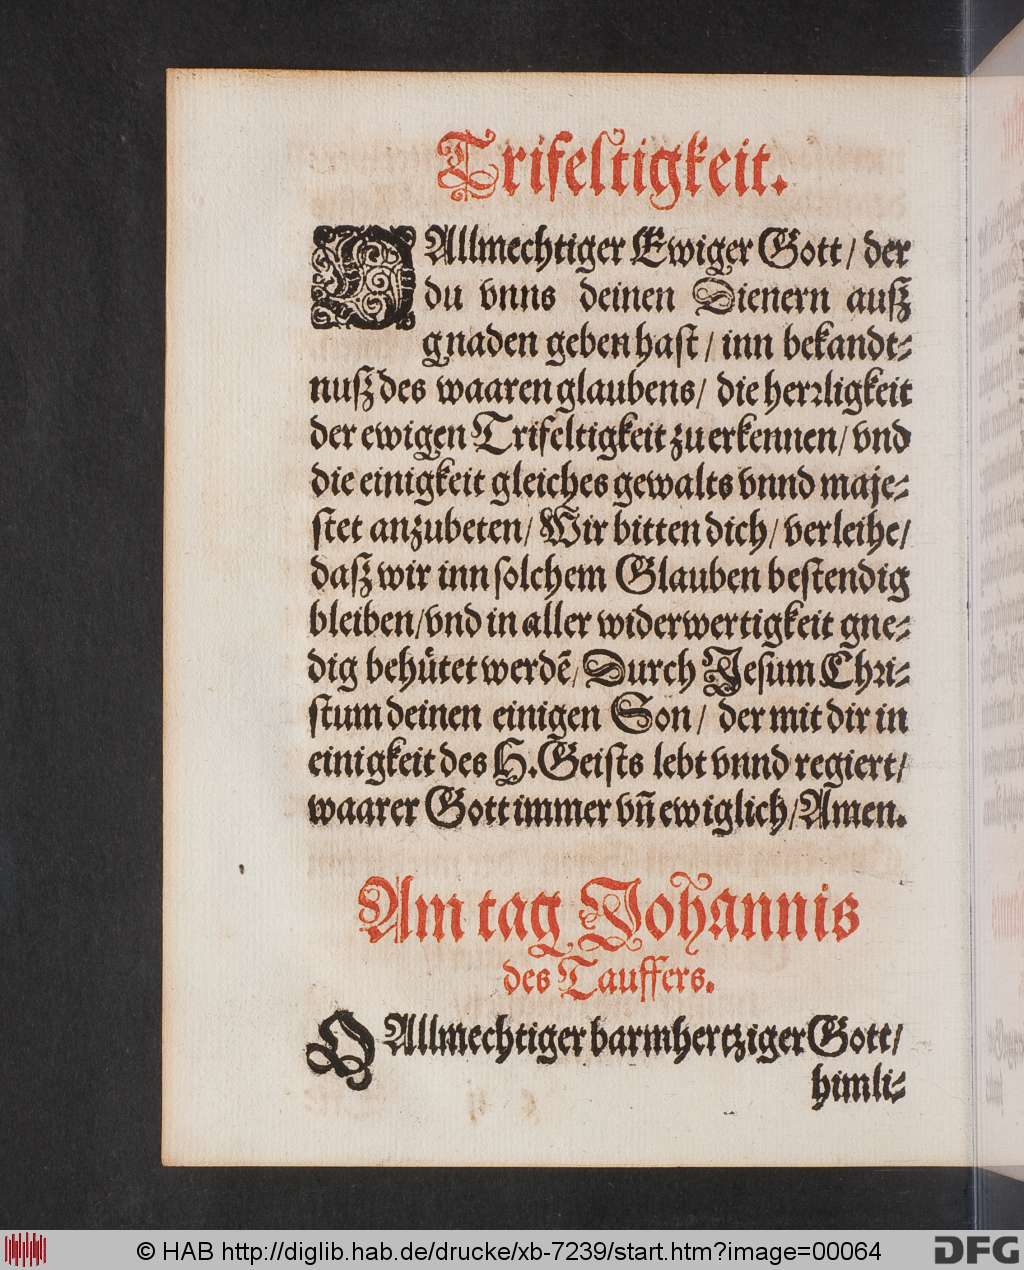 Trifeltigkeit.
O Allmechtiger Ewiger Gott/ der
du vnns deinen Dienern auß
gnaden geben hast/ inn bekandt-
nuß des waaren glaubens/ die herrligkeit
der ewigen Trifeltigkeit zu erkennen/ vnd
die einigkeit gleiches gewalts vnnd maje-
stet anzubeten/ Wir bitten dich/ verleihe/
daß wir inn solchem Glauben bestendig
bleiben/ vnd in aller widerwertigkeit gne-
dig behütet werdẽ/ Durch Jesum Chri-
stum deinen einigen Son/ der mit dir in
einigkeit des H. Geists lebt vnnd regiert/
waarer Gott immer vñ ewiglich/ Amen.
Am tag Johannis
des Tauffers.
O Allmechtiger barmhertziger Gott/
himli-
© HAB http://diglib.hab.de/drucke/xb-7239/start.htm?image=00064
DFG